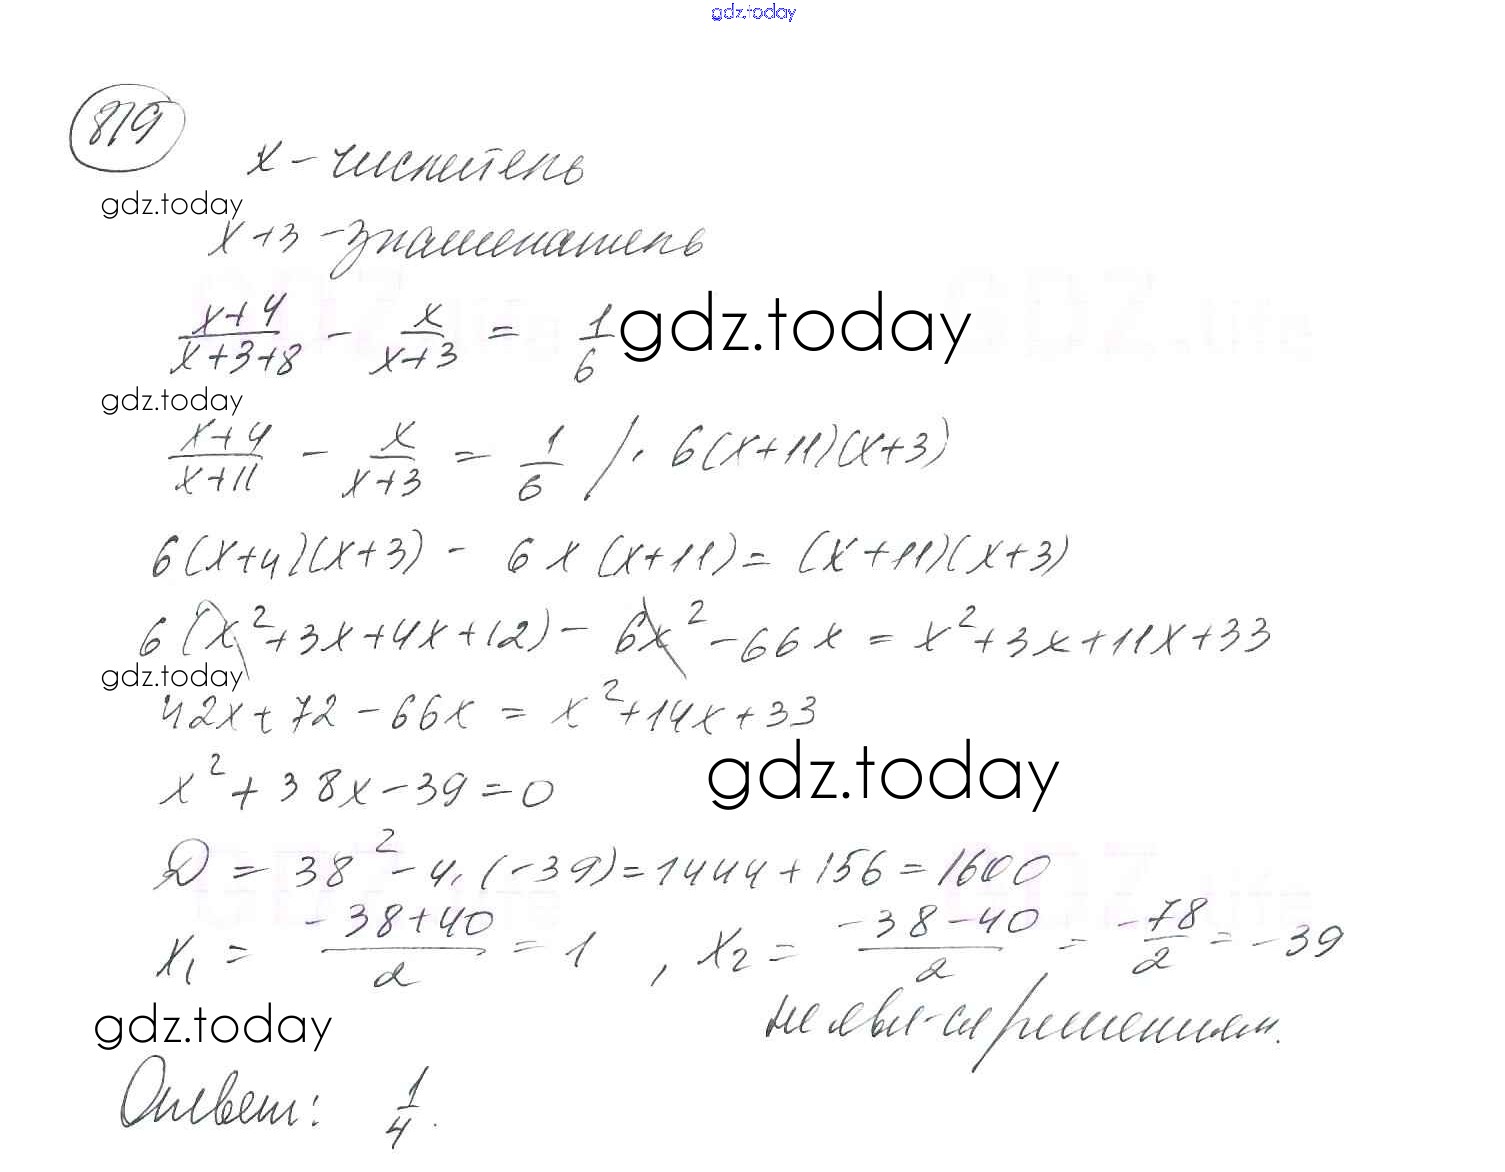 gdz.today
819
x - числитель
gdz.today
x+3 - знаменатель
(x+4)/(x+3+8) - x/(x+3) = 1/6
gdz.today
gdz.today
(x+4)/(x+11) - x/(x+3) = 1/6 /· 6(x+11)(x+3)
6(x+4)(x+3) - 6x(x+11) = (x+11)(x+3)
6(x²+3x+4x+12) - 6x² - 66x = x²+3x+11x+33
gdz.today
42x+72-66x = x²+14x+33
x²+38x-39=0
gdz.today
D = 38² - 4·(-39) = 1444+156 = 1600
x₁ = (-38+40)/2 = 1, x₂ = (-38-40)/2 = -78/2 = -39
не явл-ся решением.
gdz.today
Ответ: 1/4.